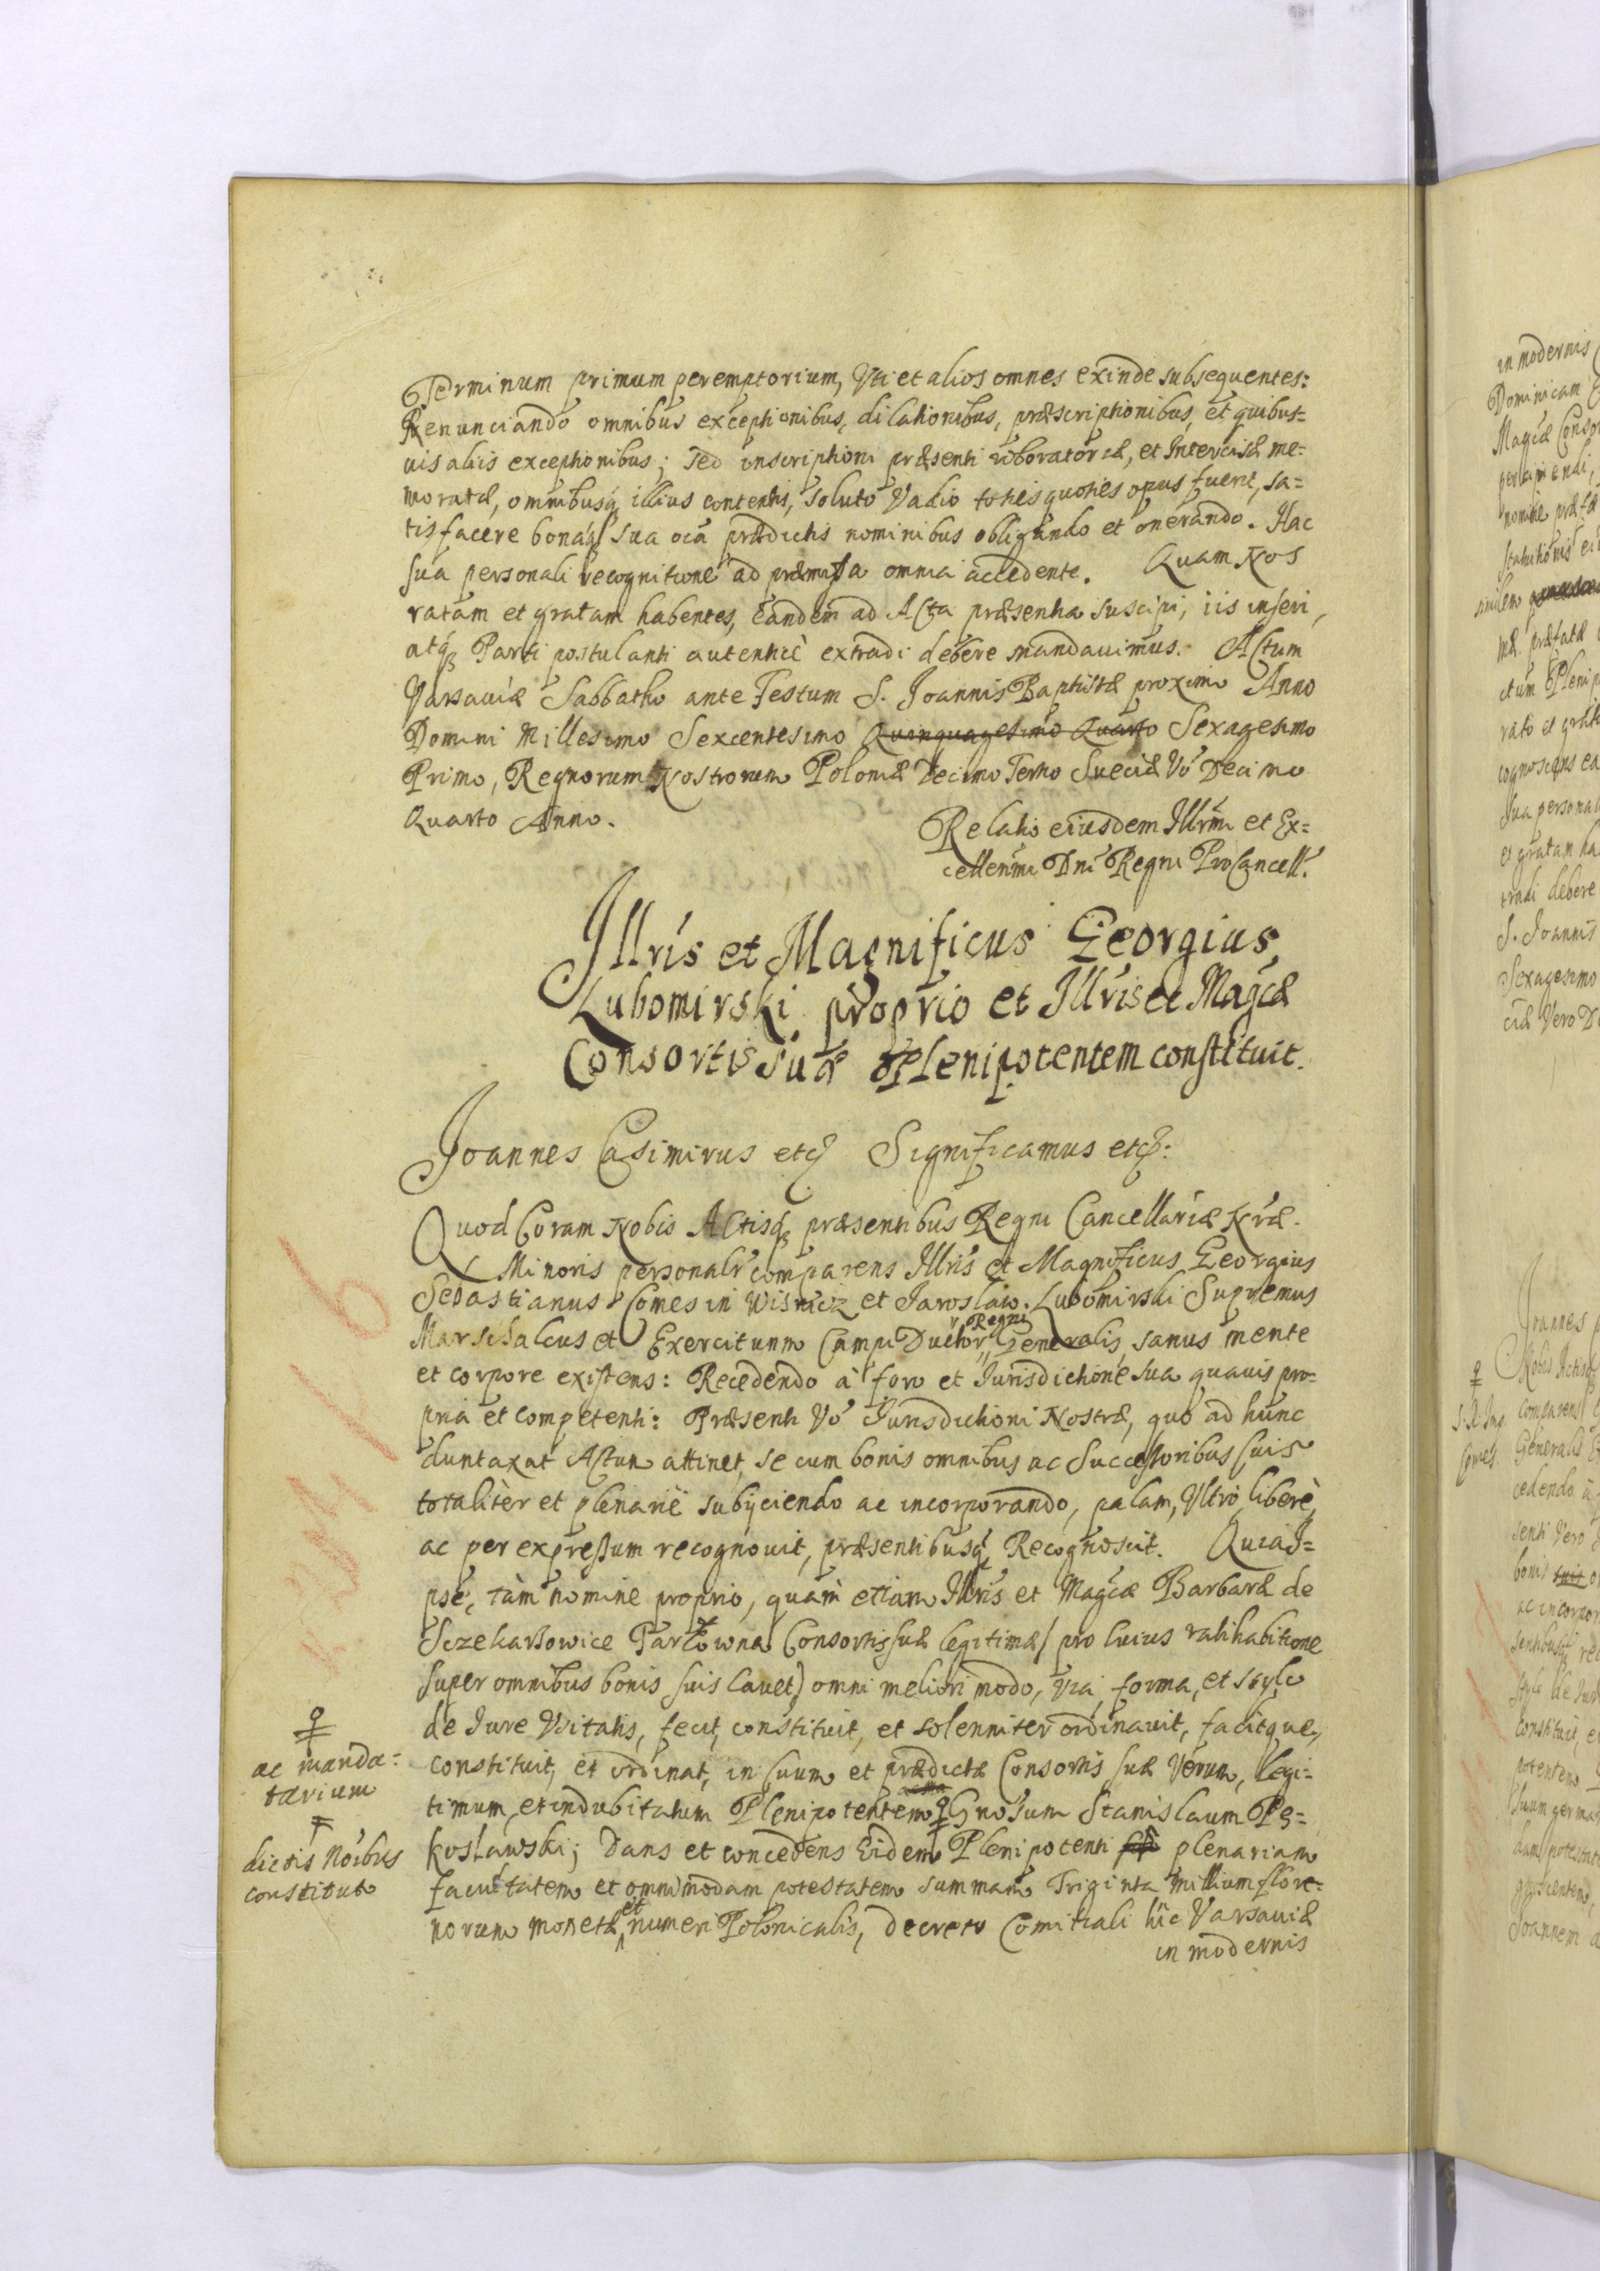 Terminum primum peremptorium, Uti et alios omnes exinde subsequentes:
Renunciando omnibus exceptionibus, dilationibus, præscriptionibus, et quibus=
uis aliis exceptionibus; Sed inscriptioni præsenti roboratoriæ, et Intercisæ me=
moratæ, omnibusq illius contentis, soluto Vadio toties quoties opus fuerit, sa=
tisfacere bonaq sua oia prædictis nominibus obligando et onerando. Hac
sua personali recognitione ad præmissa omnia accedente. Quam Nos
ratam et gratam habentes, eandem ad Acta præsentia suscipi, iis inseri,
atq Parti postulanti autenticè extradi debere mandauimus. Actum
Varsauiæ Sabbatho ante Festum S. Joannis Baptistæ proximo Anno
Domini Millesimo Sexcentesimo Quinquagesimo Quarto Sexagesimo
Primo, Regnorum Nostrorum Poloniæ Decimo Tertio Sueciæ Vo Decimo
Quarto Anno.
Relatio eiusdem Illrmi et Ex=
cellenmi Dni Regni ProCancell.
Illris et Magnificus Georgius
Lubomirski proprio et Illris et Magcæ
Consortis suæ Plenipotentem constituit.
Joannes Casimirus etc Significamus etc:
Quod Coram Nobis Actisq præsentibus Regni Cancellariæ Nræ
Minoris personalr comparens Illris et Magnificus Georgius
Sebastianus Comes in Wisnicz et Jaroslaw Lubomirski Supremus
Marschalcus et Exercituum Campi Ductor Regni Generalis, sanus mente
et corpore existens: Recedendo à foro et Jurisdictione sua quauis pro-
pria et competenti: Præsenti Vo Jurisdictioni Nostræ, quo ad hunc
duntaxat Actum attinet, se cum bonis omnibus ac Successoribus suis
totalitèr et plenariè subijciendo ac incorporando, palam, Ultro, liberè,
ac per expressum recognouit, præsentibusq Recognoscit. Quia I=
pse, tàm nomine proprio, quàm etiam Illris et Magcæ Barbaræ de
Sczekarzowice Tarłowna Consortis suæ legitimæ / pro cuius ratihabitione
super omnibus bonis suis cauet) omni meliori modo, via, forma, et stylo
de Jure Usitatis, fecit, constituit, et solenniter ordinauit, facitque,
constituit, et ordinat, in suum et prædictæ Consortis suæ Verum, legi=
timum, et indubitatum Plenipotentem Gnosum Stanislaum Pę=
kosławski; Dans et concedens Eidem Plenipotenti plenariam
facultatem et omnimodam potestatem summam Triginta millium flore=
norum monetæ et numeri Polonicalis, decreto Comitiali hic Varsauiæ
in modernis
ac manda=
tarium
dictis noibus
constituto